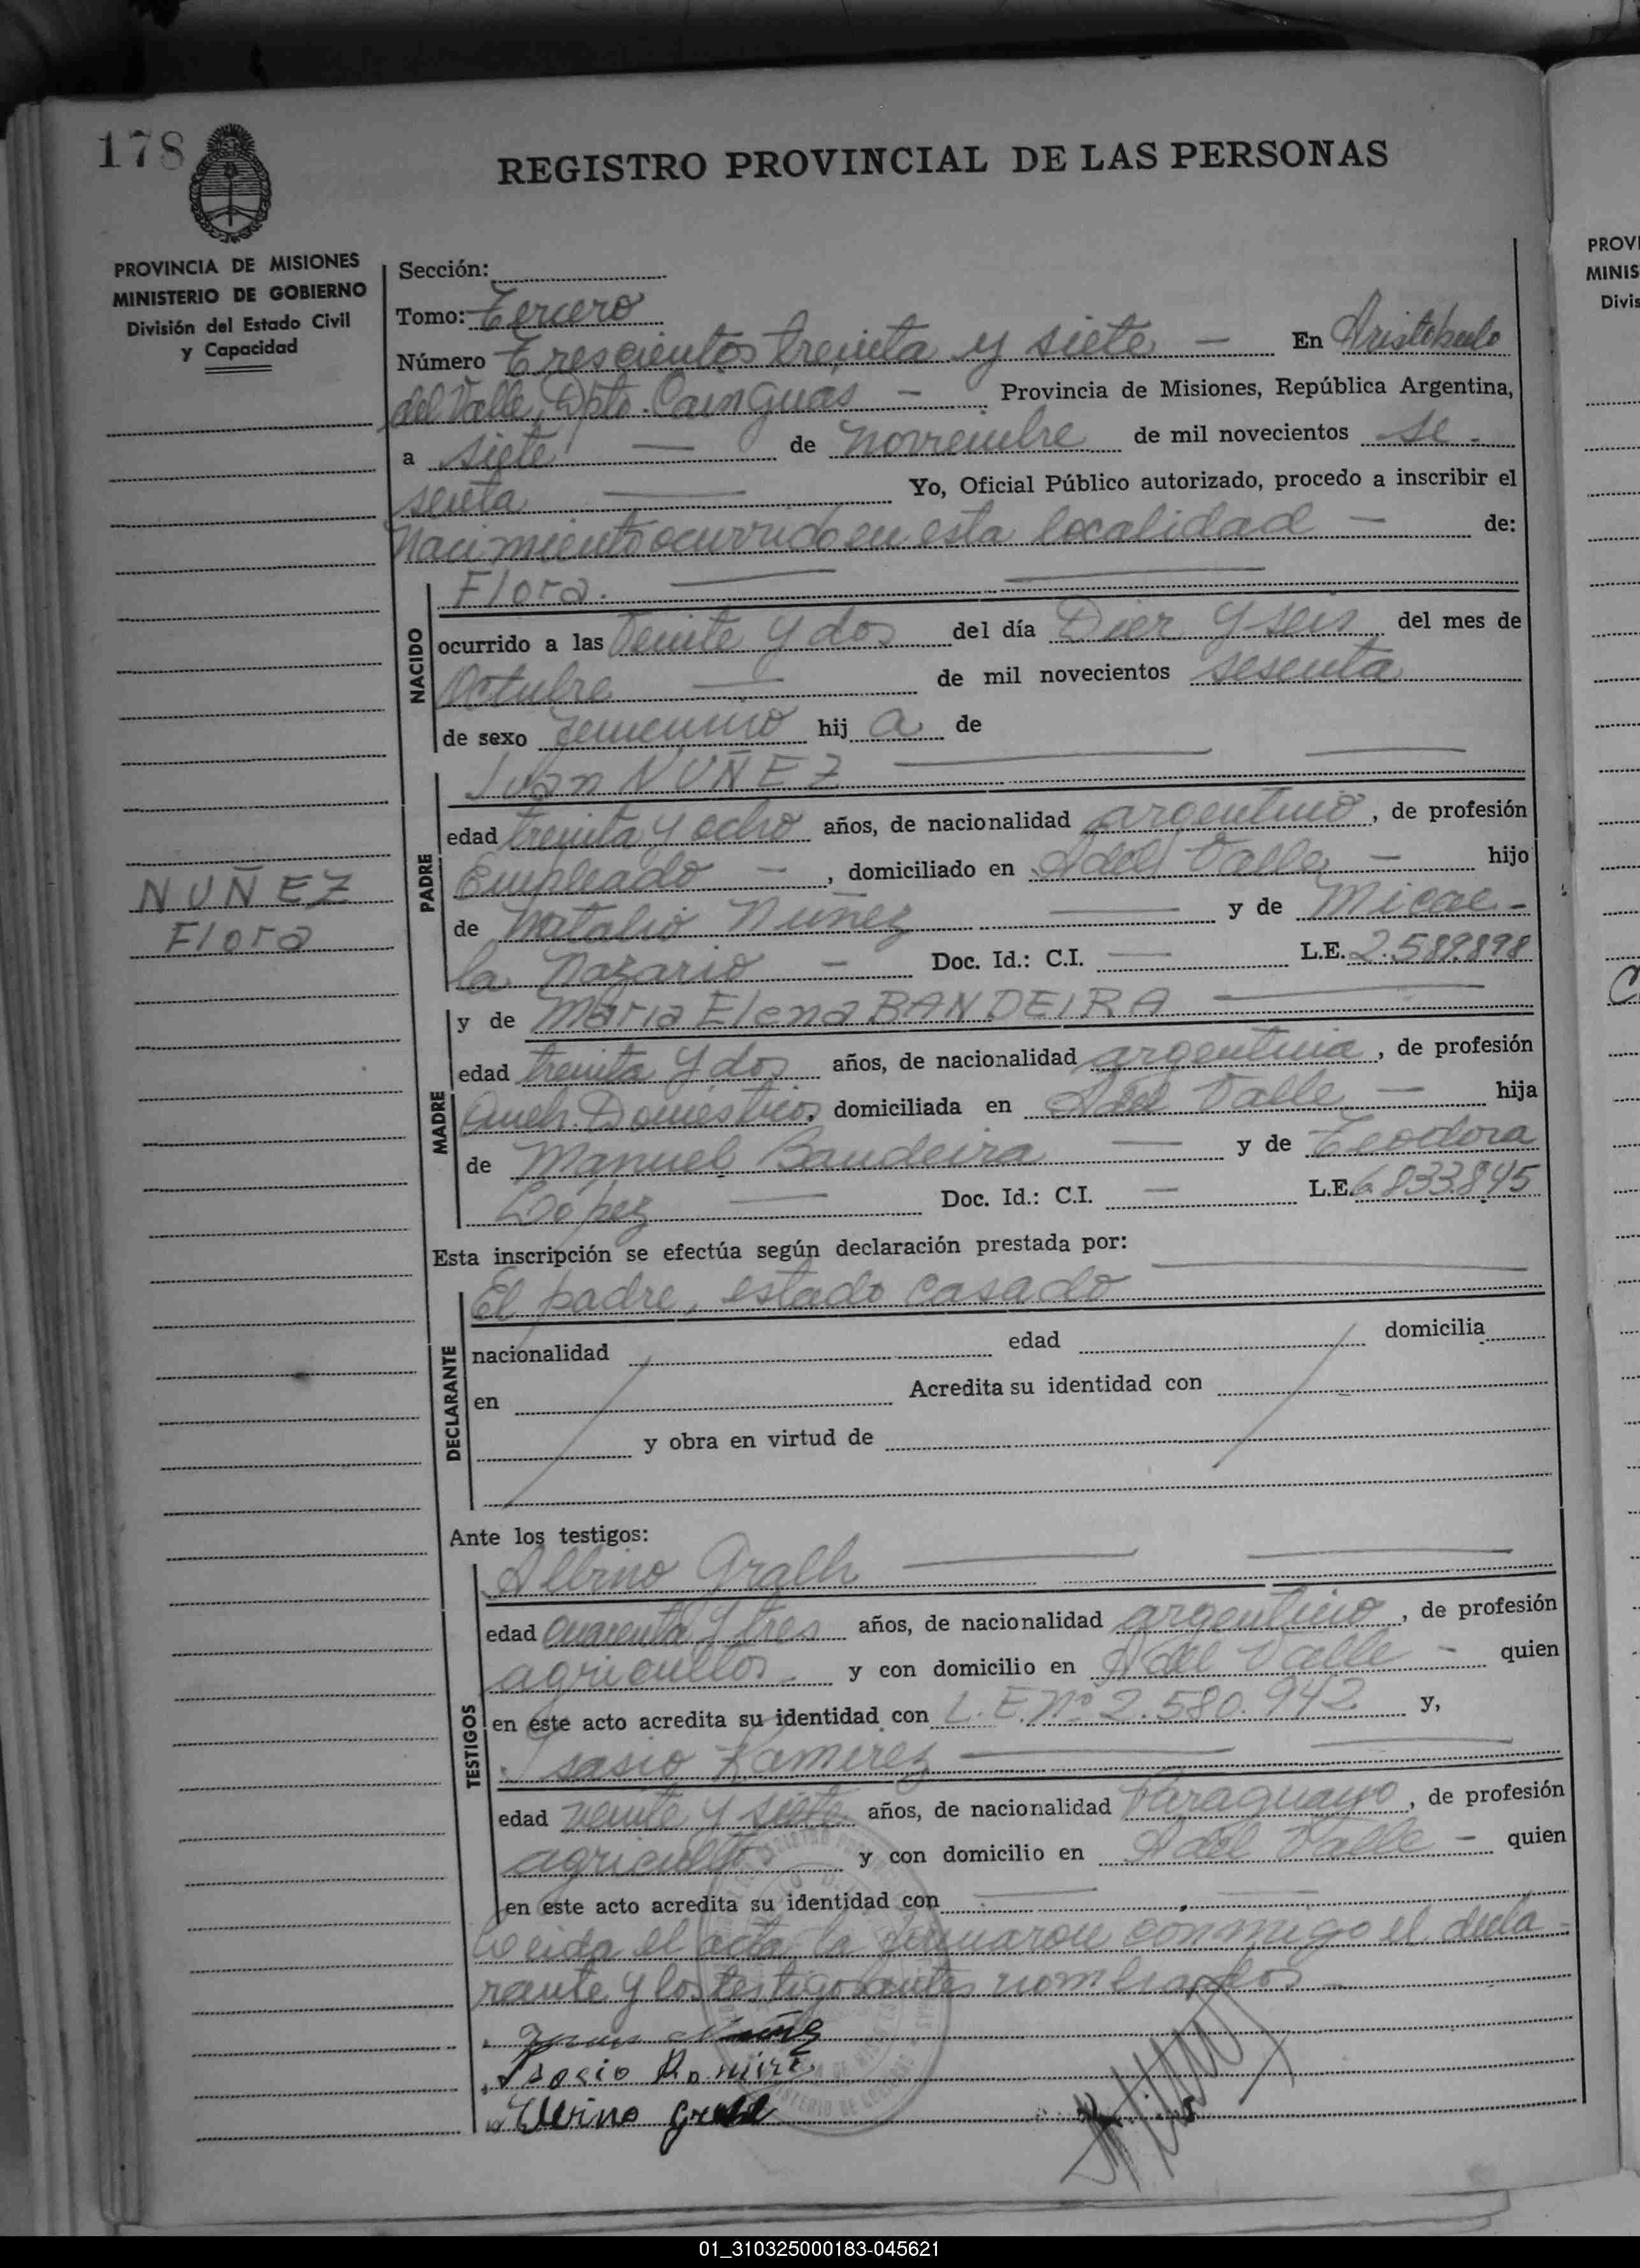 178
REGISTRO PROVINCIAL DE LAS PERSONAS
PROVINCIA DE MISIONES
MINISTERIO DE GOBIERNO
División del Estado Civil
y Capacidad
Sección:
Tomo: Tercero
Número Trescientos treinta y siete — En Aristobulo
del Valle, Dpto. Cainguas — Provincia de Misiones, República Argentina,
a siete — de noviembre de mil novecientos se-
senta — Yo, Oficial Público autorizado, procedo a inscribir el
Nacimiento ocurrido en esta localidad — de:
NACIDO
Flora.
ocurrido a las Veinte y dos del día Diez y seis del mes de
Octubre — de mil novecientos sesenta
de sexo femenino hij a de
PADRE
Juan NUÑEZ
edad treinta y ocho años, de nacionalidad argentino, de profesión
Empleado —, domiciliado en A del Valle — hijo
NUÑEZ
Flora
de Natalio Nuñez — y de Micae-
la Nazario — Doc. Id.: C.I. — L.E. 2.589.898
MADRE
y de Maria Elena BANDEIRA
edad treinta y dos años, de nacionalidad argentina, de profesión
Queh. Domésticos, domiciliada en A del Valle — hija
de Manuel Bandeira — y de Teodora
López — Doc. Id.: C.I. — L.E. 6.833.845
Esta inscripción se efectúa según declaración prestada por:
DECLARANTE
El padre, estado casado
nacionalidad edad domicilia
en Acredita su identidad con
y obra en virtud de
Ante los testigos:
TESTIGOS
Albino Gralh
edad cuarenta y tres años, de nacionalidad argentino, de profesión
agricultor - y con domicilio en A del Valle - quien
en este acto acredita su identidad con L.E. Nº 2.580.942 y,
Isasio Ramirez
edad veinte y siete años, de nacionalidad Paraguayo, de profesión
agricultor y con domicilio en A del Valle - quien
en este acto acredita su identidad con —
Leida el acta la firmaron conmigo el decla-
rante y los testigos antes nombrados —
Juan Nuñez
Isasio Ramire
Albino Gralh
PROVI
MINIS
Divis
01_310325000183-045621